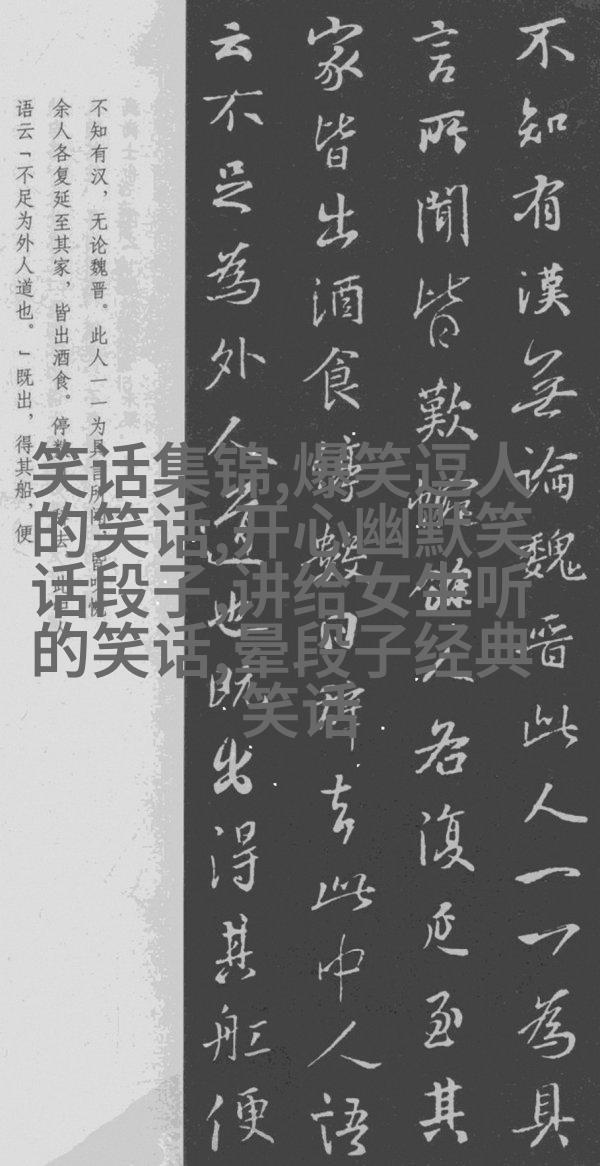 不知有漢無論魏晋此人一一為具
言所聞皆歎惋餘人各復延至其
家皆出酒食停數日辭去此中人語
云不足為外人道也既出得其舡便
不知有汉，无论魏晋。此人一一为具言所闻，皆叹惋
余人各复延至其家，皆出酒食。停数去。此
语云「不足为外人道也。」既出，得其船，便
笑话集锦,爆笑逗人
的笑话,开心幽默笑
话段子,讲给女生听
的笑话,晕段子经典
笑话